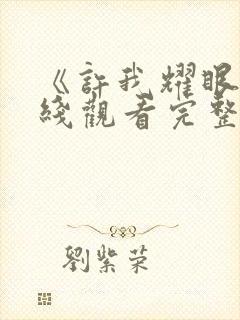 《許我耀眼
綫觀看完整
劉紫荣